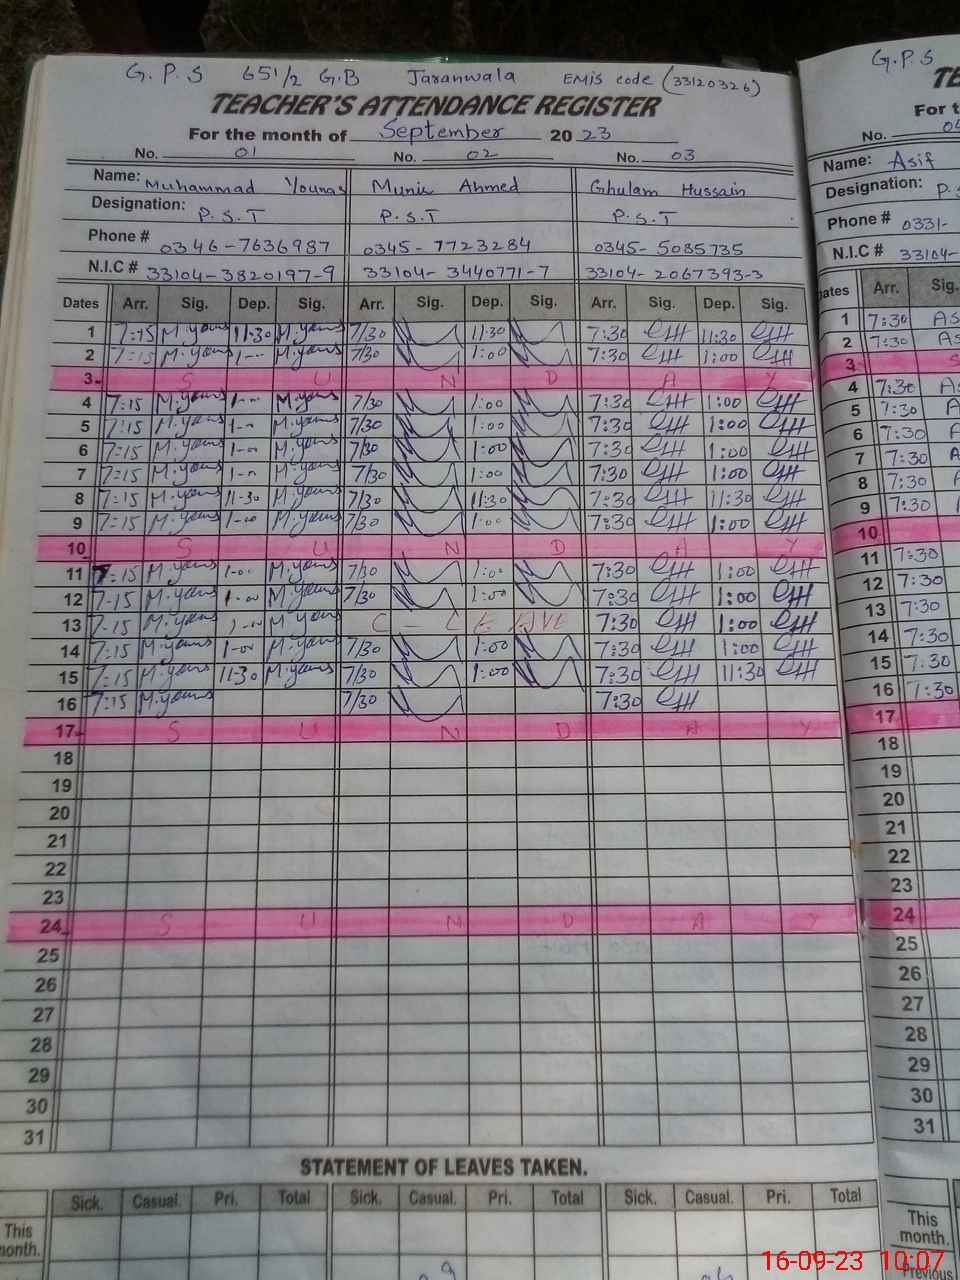 G.P.S 651/2 G.B Jaranwala EMIS code (33120326)
TEACHER'S ATTENDANCE REGISTER
For the month of September 2023
No. 01 No. 02 No. 03
Name: Muhammad Younas Munir Ahmed Ghulam Hussain
Designation: P.S.T P.S.T P.S.T
Phone # 0346-7636987 0345-7723284 0345-5085735
N.I.C # 33104-3820197-9 33104-3440771-7 33104-2067393-3
Dates Arr. Sig. Dep. Sig. Arr. Sig. Dep. Sig. Arr. Sig. Dep. Sig.
1 7:15 M.youns 11-30 M.youns 7/30 11:30 7:30 11:30
2 7:15 M.youns 1-- M.youns 7/30 1:00 7:30 1:00
3 S U N D A Y
4 7:15 M.youns 1-00 M.youns 7/30 1:00 7:30 1:00
5 7:15 M.youns 1-00 M.youns 7/30 1:00 7:30 1:00
6 7:15 M.youns 1-00 M.youns 7/30 1:00 7:30 1:00
7 7:15 M.youns 1-00 M.youns 7/30 1:00 7:30 1:00
8 7:15 M.youns 11-30 M.youns 7/30 11:30 7:30 11:30
9 7:15 M.youns 1-00 M.youns 7/30 1:00 7:30 1:00
10 S U N D A Y
11 7:15 M.youns 1-00 M.youns 7/30 1:00 7:30 1:00
12 7-15 M.youns 1-00 M.youns 7/30 1:00 7:30 1:00
13 7-15 M.youns 1-00 M.youns C-LEAVE 7:30 1:00
14 7:15 M.youns 1-00 M.youns 7/30 1:00 7:30 1:00
15 7:15 M.youns 11-30 M.youns 7/30 1:00 7:30 11:30
16 7:15 M.youns 7/30 7:30
17 S U N D A Y
18
19
20
21
22
23
24 S U N D A Y
25
26
27
28
29
30
31
STATEMENT OF LEAVES TAKEN.
Sick. Casual. Pri. Total Sick. Casual. Pri. Total Sick. Casual. Pri. Total
This month.
G.P.S
TE
For t
No. 04
Name: Asif
Designation: P.S
Phone # 0331-
N.I.C # 33104-
Dates Arr. Sig.
1 7:30 As
2 7:30 As
3 S
4 7:30 A
5 7:30 A
6 7:30 A
7 7:30 A
8 7:30 A
9 7:30
10
11 7:30
12 7:30
13 7:30
14 7:30
15 7:30
16 7:30
17
18
19
20
21
22
23
24
25
26
27
28
29
30
31
This month.
Previous
16-09-23 10:07